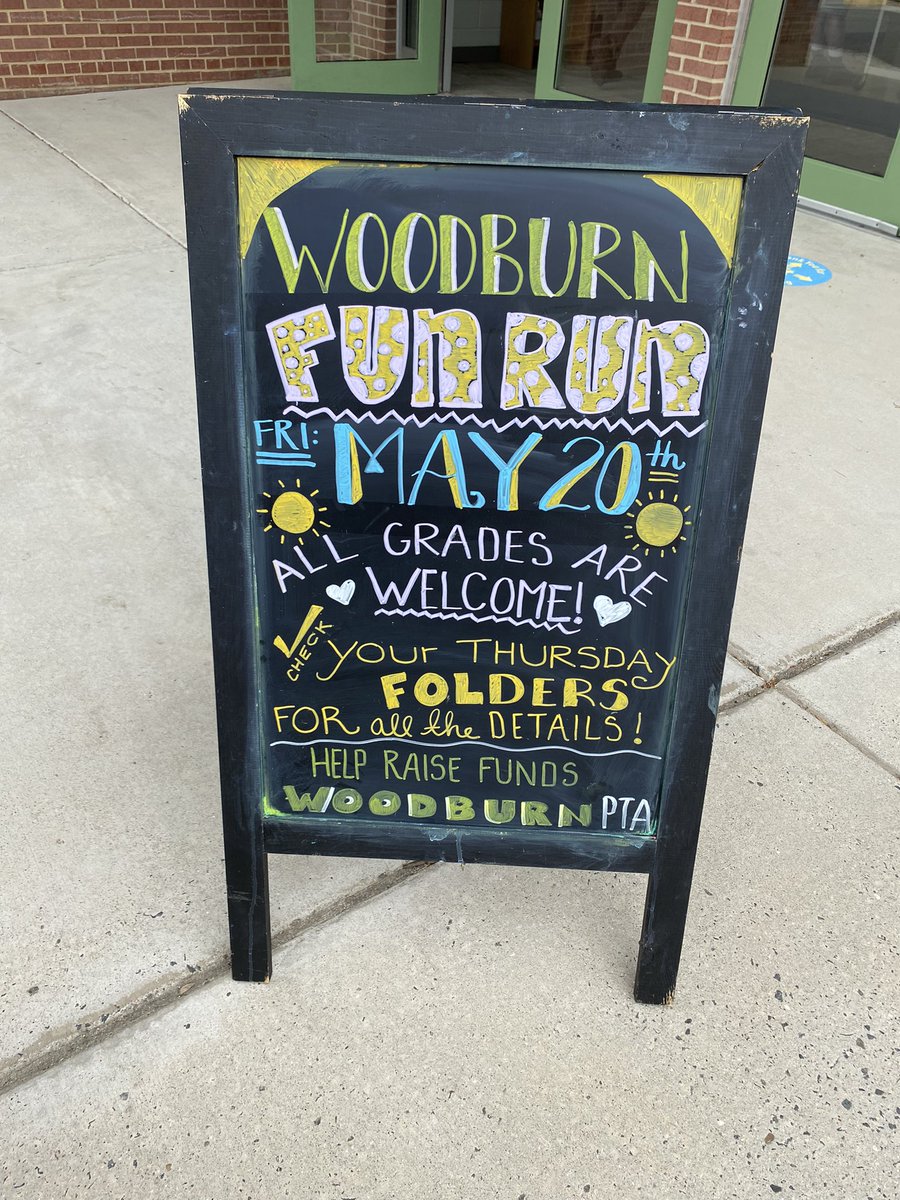 WOODBURN
FUN RUN
FRI: MAY 20th
ALL GRADES ARE
WELCOME!
CHECK your THURSDAY
FOLDERS
FOR all the DETAILS!
HELP RAISE FUNDS
WOODBURN PTA